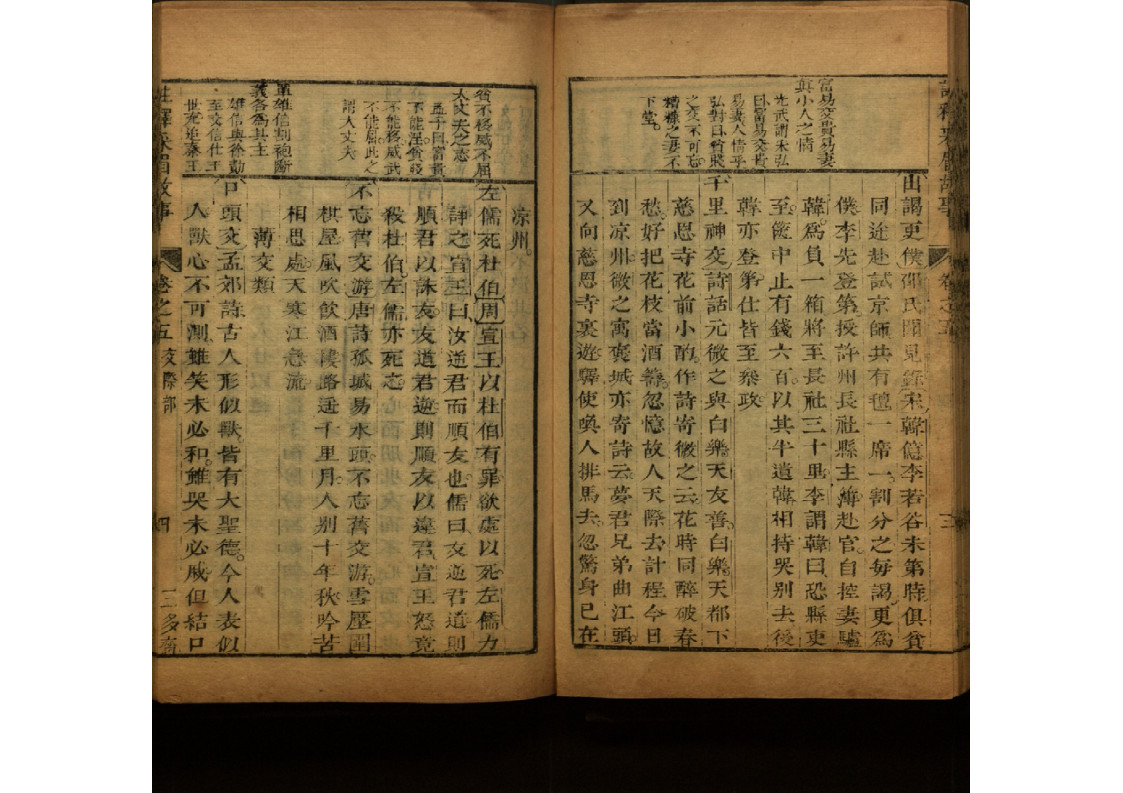 富易交貴易妻
眞小人之情
光武謂宋弘
曰富易交貴
易妻人情乎
弘對曰貧賤
之交不可忘
糟糠之妻不
下堂
出謁更僕邵氏聞見錄宋韓億李若谷未第時俱貧
同途赴試京師共有氊一席一割分之每謁更爲
僕李先登第授許州長社縣主簿赴官自控妻驢
韓爲負一箱將至長社三十里李謂韓曰恐縣吏
至箧中止有錢六百以其半遺韓相持哭別去後
韓亦登第仕皆至叅政
千里神交詩話元微之與白樂天友善白樂天都下
慈恩寺花前小酌作詩寄微之云花時同醉破春
愁好把花枝當酒籌忽憶故人天際去計程今日
到凉州微之寓褒城亦寄詩云夢君兄弟曲江頭
又向慈恩寺裏遊驛使喚人排馬去忽驚身已在
三
貧不移威不屈
大丈夫之志
孟子曰富貴
不能淫貧賤
不能移威武
不能屈此之
謂大丈夫
單雄信割袍斷
義各爲其主
雄信與徐勣
至交信仕王
世充追秦王
凉州
左儒死杜伯周宣王以杜伯有罪欲處以死左儒力
諍之宣王曰汝逆君而順友也儒曰友逆君道則
順君以誅友友道君逆則順友以違君宣王怒竟
殺杜伯左儒亦死之
不忘舊交游唐詩孤城易水頭不忘舊交游雪壓圍
棋屋風吹飲酒樓路遥千里月人别十年秋吟苦
相思處天寒江急流
薄交類
口頭交孟郊詩古人形似獸皆有大聖德今人表似
人獸心不可測雖笑未必和雖哭未必戚但結口
註釋白眉故事
卷之五
交際部
四
三多齋